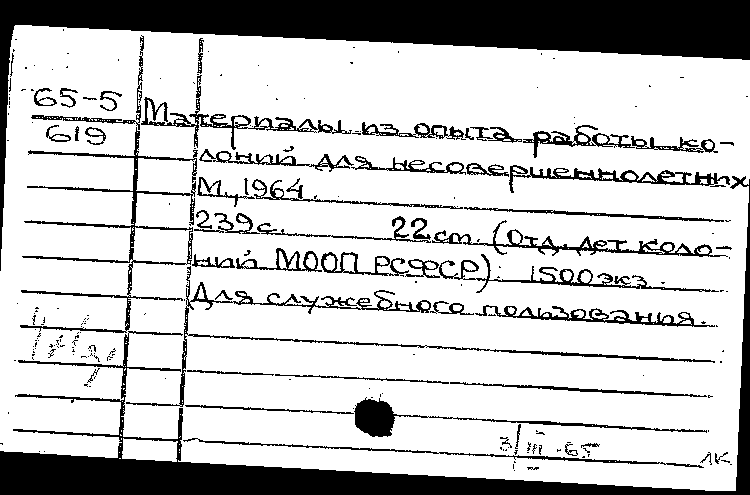 65-5
619
Материалы из опыта работы ко-
лоний для несовершеннолетних
М., 1964.
239с. 22см. (Отд. дет. коло-
ний МООП РСФСР). 1500 экз.
Для служебного пользования.
3/III-65
ЛК